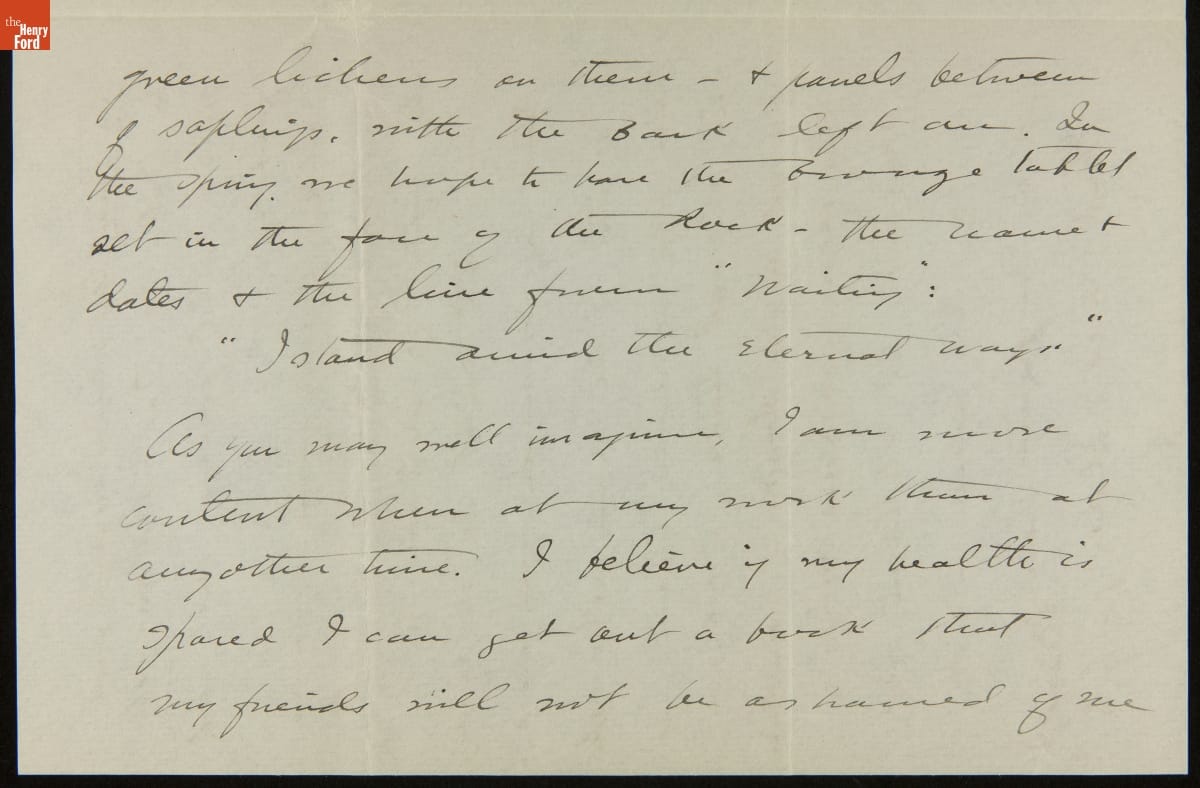 the Henry Ford
green lichens on them – & panels between
of saplings, with the Bark left on. In
the spring we hope to have the bronze tablet
set in the face of the Rock – the name &
dates & the line from "Waiting":
"I stand amid the Eternal ways"
As you may well imagine, I am more
content when at my work than at
any other time. I believe if my health is
spared I can get out a book that
my friends will not be ashamed of me